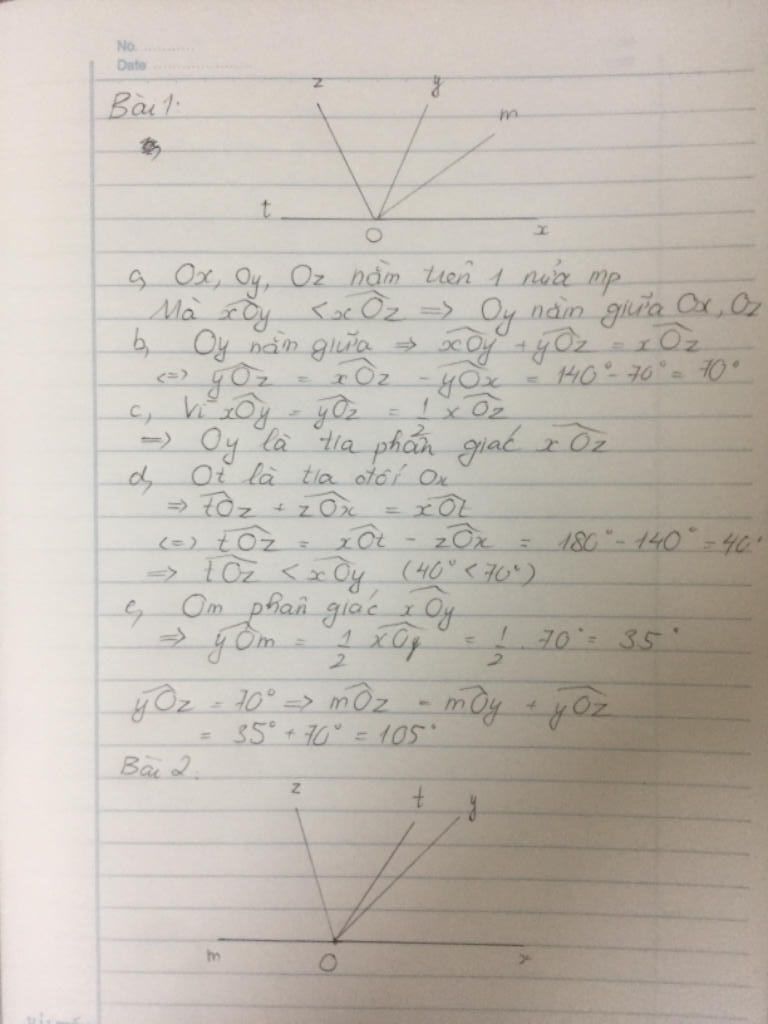 No.
Date
Bài 1.
z y m
t O x
a, Ox, Oy, Oz nằm trên 1 nửa mp
Mà xOy < xOz => Oy nằm giữa Ox, Oz
b, Oy nằm giữa => xOy + yOz = xOz
<=> yOz = xOz - yOx = 140° - 70° = 70°
c, Vì xOy = yOz = 1/2 xOz
=> Oy là tia phân giác xOz
d, Ot là tia đối Ox
=> tOz + zOx = xOt
<=> tOz = xOt - zOx = 180° - 140° = 40°
=> tOz < xOy (40° < 70°)
e, Om phân giác xOy
=> yOm = 1/2 xOy = 1/2 . 70° = 35°
yOz = 70° => mOz = mOy + yOz
= 35° + 70° = 105°
Bài 2.
z t y
m O x